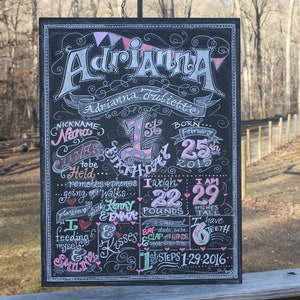 Adrianna
Adrianna Juliette
NICKNAME
Nana
1st
BIRTHDAY
BORN
February
25th
2015
LOVES
to be
Held
remotes & phones
going on Walks
playing with Kenny
& Emmie
I weigh
22
POUNDS
I AM
29
INCHES
TALL
I
feeding
myself
&
SMILES
Kisses
CLAP HANDS
I have
6
TEETH
1st STEPS 1·29·2016